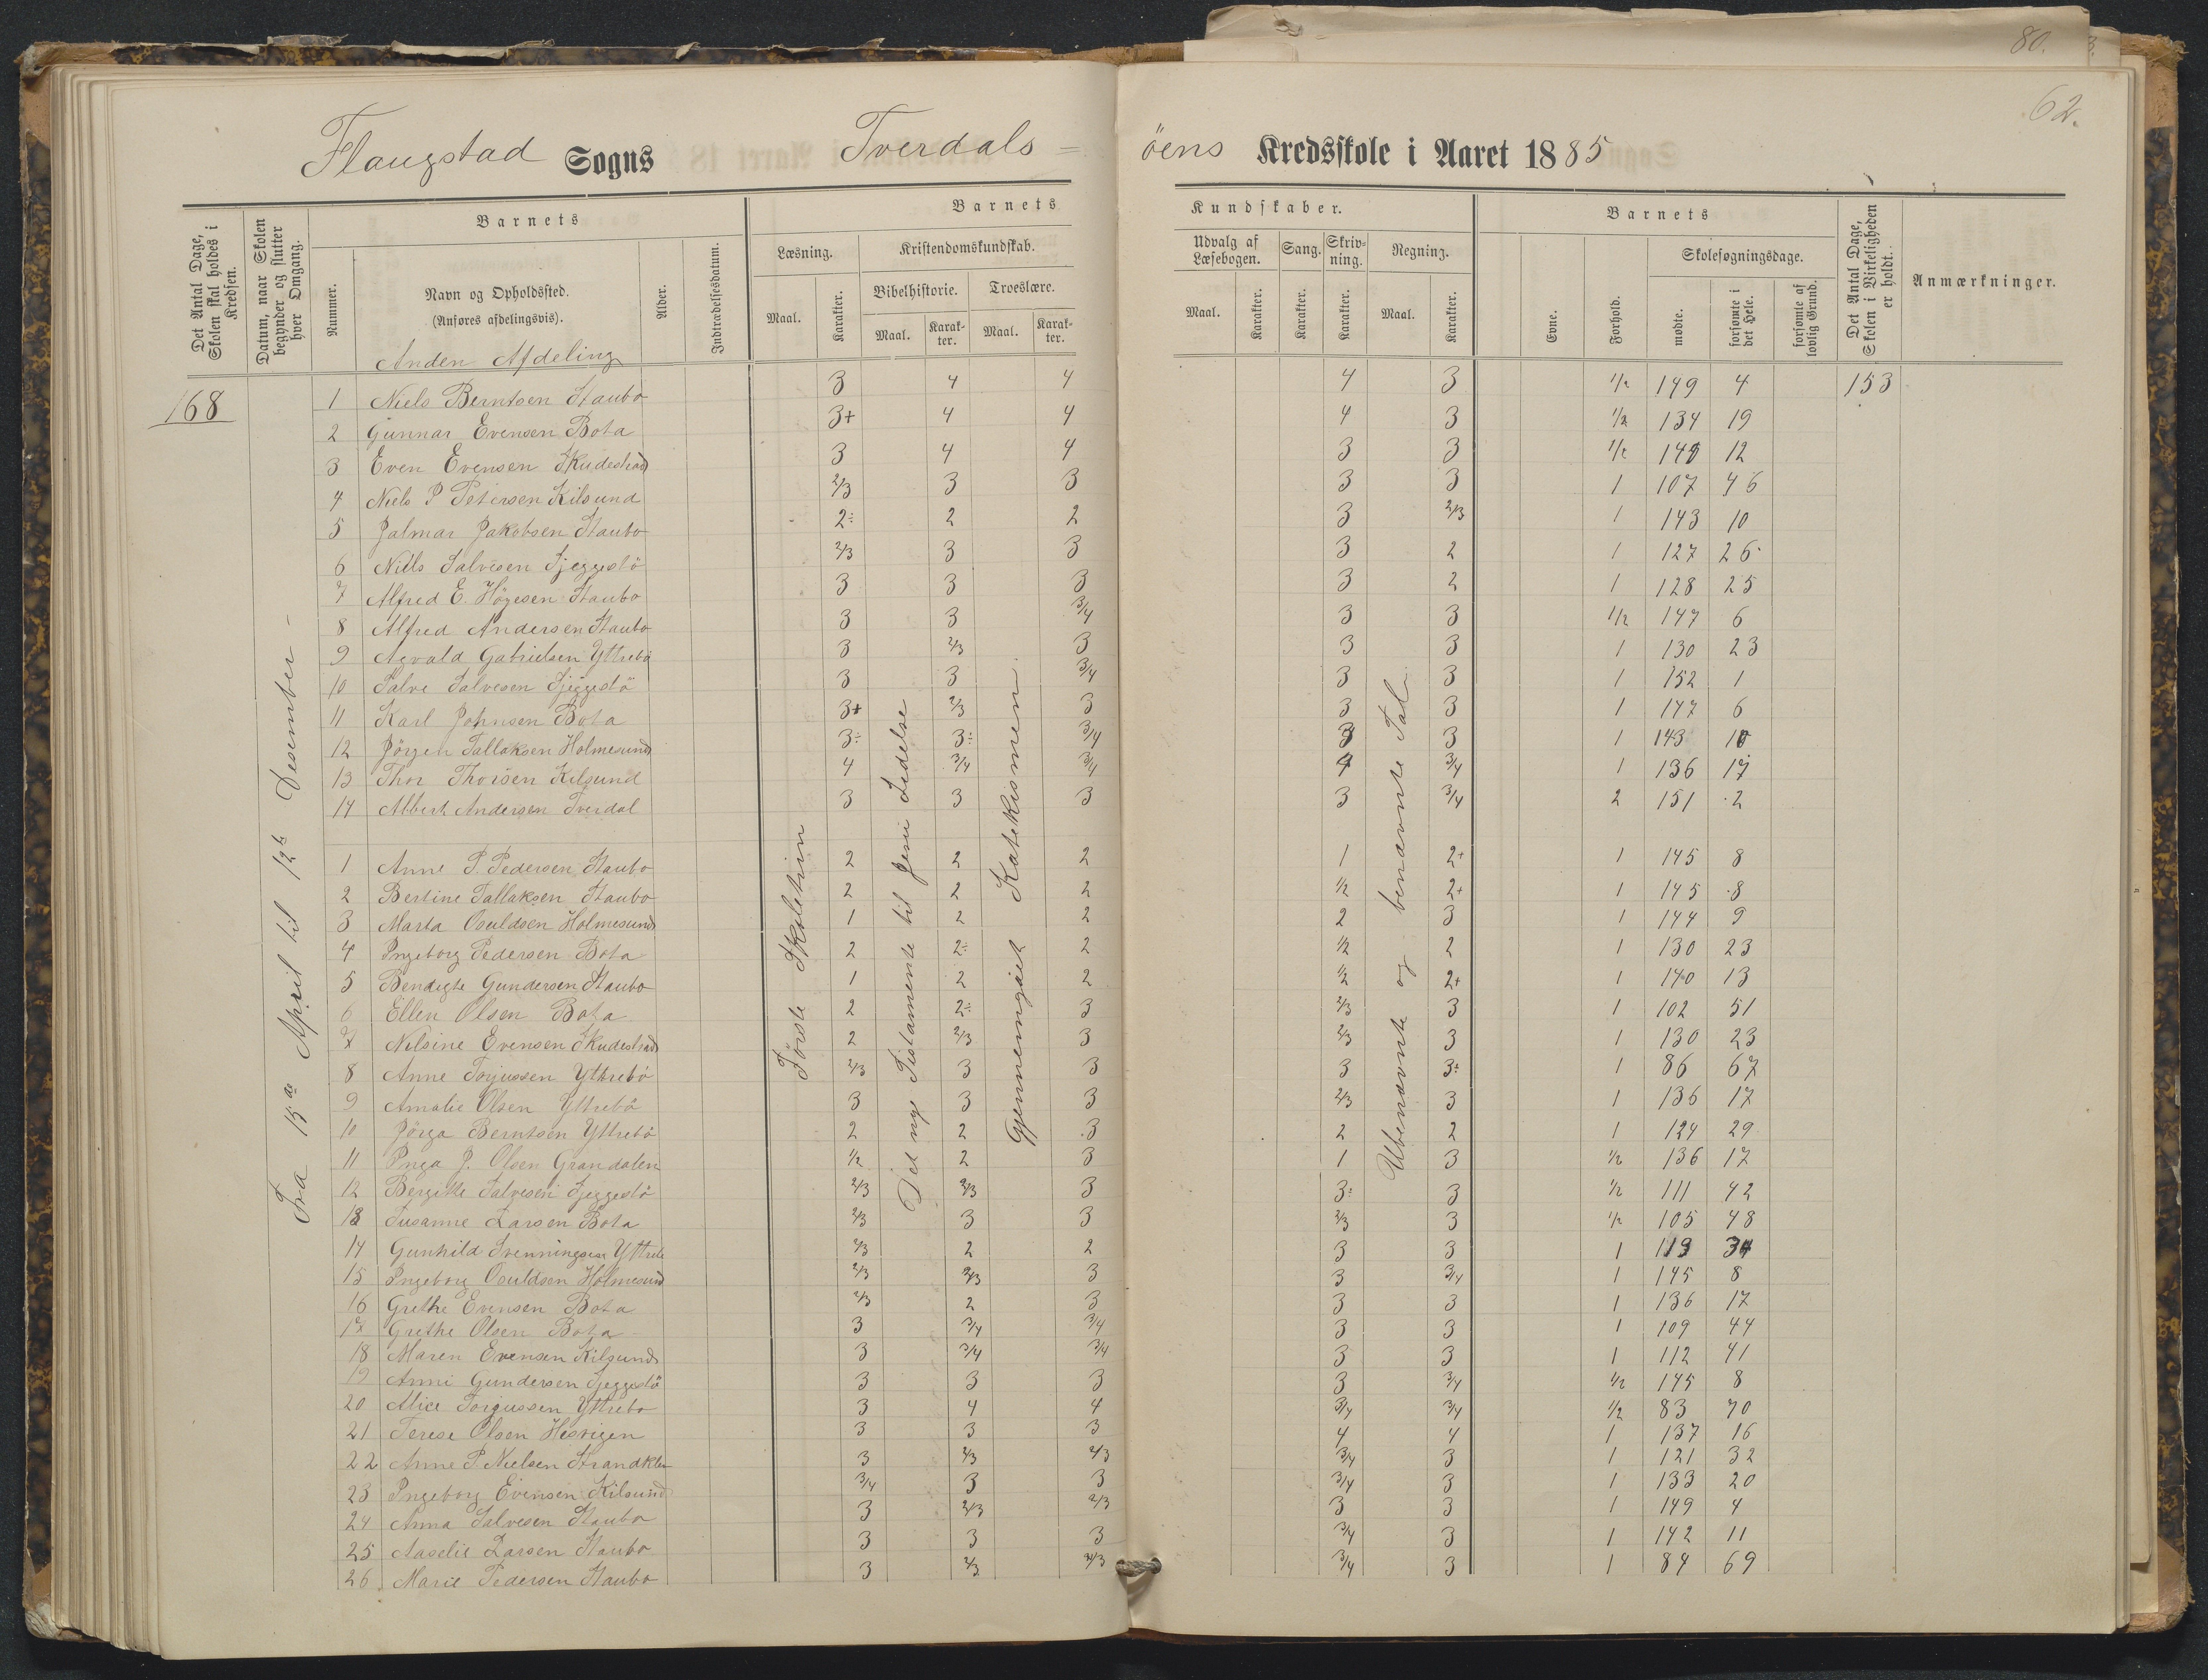 80.
62.
Flaugstad Sogns Tverdals = öens Kredsskole i Aaret 1885
Det Antal Dage, Skolen skal holdes i Kredsen.
Datum, naar Skolen begynder og slutter hver Omgang.
Barnets
Nummer.
Navn og Opholdssted.
(Anføres afdelingsvis).
Alder.
Indtrædelsesdatum.
Barnets Kundskaber.
Læsning.
Maal. Karakter.
Kristendomskundskab.
Bibelhistorie. Troeslære.
Maal. Karakter. Maal. Karakter.
Udvalg af Læsebogen. Sang. Skrivning. Regning.
Maal. Karakter. Karakter. Karakter. Maal. Karakter.
Barnets
Evne. Forhold.
Skolesøgningsdage.
mødte. forsømte i det Hele. forsømte af lovlig Grund.
Det Antal Dage, Skolen i Virkeligheden er holdt.
Anmærkninger.
Anden Afdeling
168
153
Fra 15de April til 12te Desember
Förste Skoletrin
Det nye Testamente til Jesu Lidelse
Gjennemgåaet Katekismen
Ubenævnte og benævnte Tal
1 Niels Berntsen Staubo 3 4 4 4 3 1/2 149 4
2 Gunnar Evensen Bota 3+ 4 4 4 3 1/2 134 19
3 Even Evensen Skudestrad 3 4 4 3 3 1/2 140 12
4 Niels P Petersen Kilsund 2/3 3 3 3 3 1 107 46
5 Jalmar Jakobsen Staubo 2÷ 2 2 3 2/3 1 143 10
6 Niels Salvesen Sjeggestö 2/3 3 3 3 2 1 127 26
7 Alfred E. Högesen Staubo 3 3 3 3 2 1 128 25
8 Alfred Andersen Staubo 3 3 3/4 3 3 1/2 147 6
9 Agvald Gabrielsen Yttrebö 3 2/3 3 3 3 1 130 23
10 Salve Salvesen Sjeggestö 3 3 3/4 3 3 1 152 1
11 Karl Johnsen Bota 3+ 2/3 3 3 3 1 147 6
12 Jörgen Tallaksen Holmesund 3÷ 3÷ 3/4 3 3 1 143 10
13 Thor Thorsen Kilsund 4 3/4 3/4 4 3/4 1 136 17
14 Albert Andersen Tverdal 3 3 3 3 3/4 2 151 2
1 Anne P. Pedersen Staubo 2 2 2 1 2+ 1 145 8
2 Bertine Tallaksen Staubo 2 2 2 1/2 2+ 1 145 8
3 Marta Osuldsen Holmesund 1 2 2 2 3 1 144 9
4 Ingeborg Pedersen Bota 2 2÷ 2 1/2 2 1 130 23
5 Bendigte Gundersen Staubo 1 2 2 1/2 2+ 1 140 13
6 Ellen Olsen Bota 2 2÷ 3 2/3 3 1 102 51
7 Nilsine Evensen Skudestrad 2 2/3 3 2/3 3 1 130 23
8 Anne Torjussen Yttrebö 2/3 3 3 3 3÷ 1 86 67
9 Amalie Olsen Yttrebö 3 3 3 2/3 3 1 136 17
10 Jörga Berntsen Yttrebö 2 2 3 2 2 1 124 29
11 Inga J. Olsen Grandalen 1/2 2 3 1 3 1/2 136 17
12 Bergitte Salvesen Sjeggestö 2/3 2/3 3 3÷ 3 1/2 111 42
13 Susanne Larsen Bota 2/3 3 3 2/3 3 1/2 105 48
14 Gunhild Svenningsen Yttrebö 2/3 2 2 3 3 1 119 34
15 Ingeborg Osuldsen Holmesund 2/3 2/3 3 3 3/4 1 145 8
16 Grethe Evensen Bota 2/3 2 3 3 3 1 136 17
17 Grethe Olsen Bota 3 3/4 3/4 3 3 1 109 44
18 Maren Evensen Kilsund 3 3/4 3/4 3 3 1 112 41
19 Anni Gundersen Sjeggestö 3 3 3 3 3/4 1/2 145 8
20 Alice Torjussen Yttrebo 3 4 4 3/4 3/4 1/2 83 70
21 Terese Olsen Hesvigen 3 3 3 4 4 1 137 16
22 Anne P. Nielsen Strandklev 3 2/3 2/3 3/4 3 1 121 32
23 Ingeborg Evensen Kilsund 3/4 3 3 3/4 3 1 133 20
24 Anna Salvesen Staubo 3 2/3 2/3 3 3 1 149 4
25 Aaselie Larsen Staubo 3 3 3 3/4 3 1 142 11
26 Marie Pedersen Staubo 3 2/3 2/3 3/4 3 1 84 69